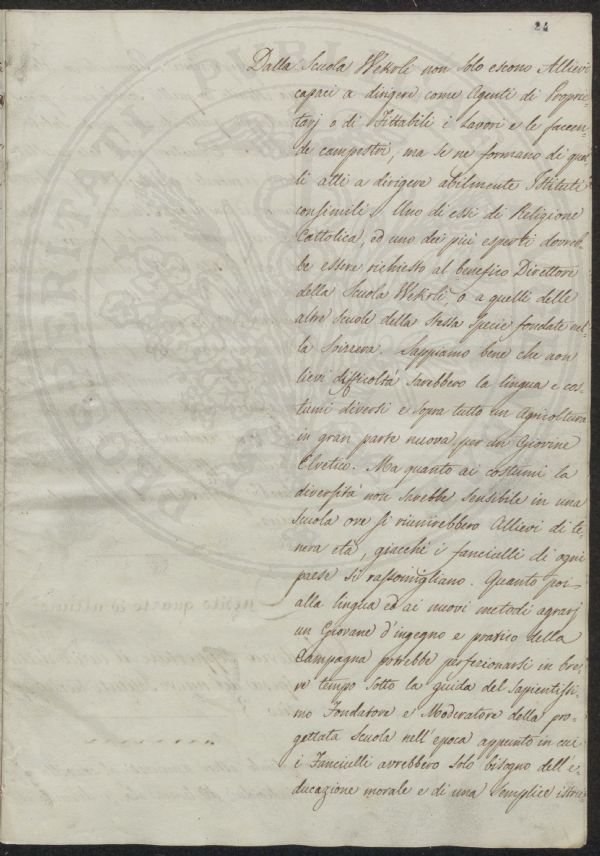 24
Dalla Scuola Wekrli non solo escono Allievi
capaci a dirigere come Agenti di Proprie-
tarj o di Fittabili i Lavori e le facen-
de campestri, ma se ne formano di quel-
li atti a dirigere abilmente Istituti
consimili. Uno di essi di Religione
Cattolica, ed uno dei più esperti dovreb-
be essere richiesto al benefico Direttore
della Scuola Wekrli, o a quelli delle
altre Scuole della stessa specie fondate nel-
la Svizzera. Sappiamo bene che non
lievi difficoltà sarebbero la lingua e co-
stumi diversi e sopra tutto un Agricoltura
in gran parte nuova per un Giovine
Elvetico. Ma quanto ai costumi la
diversità non sarebbe sensibile in una
Scuola ove si riunirebbero Allievi di te-
nera età, giacchè i fanciulli di ogni
paese si rassomigliano. Quanto poi
alla lingua ed ai nuovi metodi agrarj
un Giovane d'ingegno e pratico della
Campagna potrebbe perfezionarsi in bre-
ve tempo sotto la guida del Sapientissi-
mo Fondatore e Moderatore della pro-
gettata Scuola nell'epoca appunto in cui
i Fanciulli avrebbero solo bisogno dell'e-
ducazione morale e di una semplice istru-